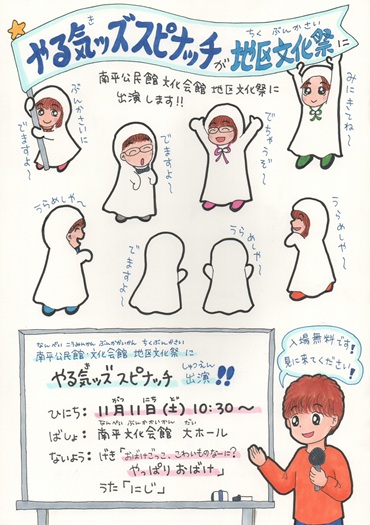 やる気ッズスピナッチが地区文化祭に
き
ちく ぶんかさい
南平公民館 文化会館 地区文化祭に
出演します!!
ぶんかさいに
でますよ〜
でますよ〜
でちゃうぞ〜
みにきてね〜
うらめしや〜
でますよ〜
うらめしや〜
なんぺい こうみんかん ぶんかかいかん ちくぶんかさい
南平公民館 文化会館 地区文化祭に
き
しゅつえん
やる気ッズスピナッチ 出演!!
がつ にち ど
ひにち: 11月11日(土) 10:30〜
なんぺい ぶんかかいかん だい
ばしょ: 南平文化会館 大ホール
ないよう: げき「おばけごっこ、こわいものなーに?
やっぱり おばけ」
うた「にじ」
入場無料です!
見に来てください!